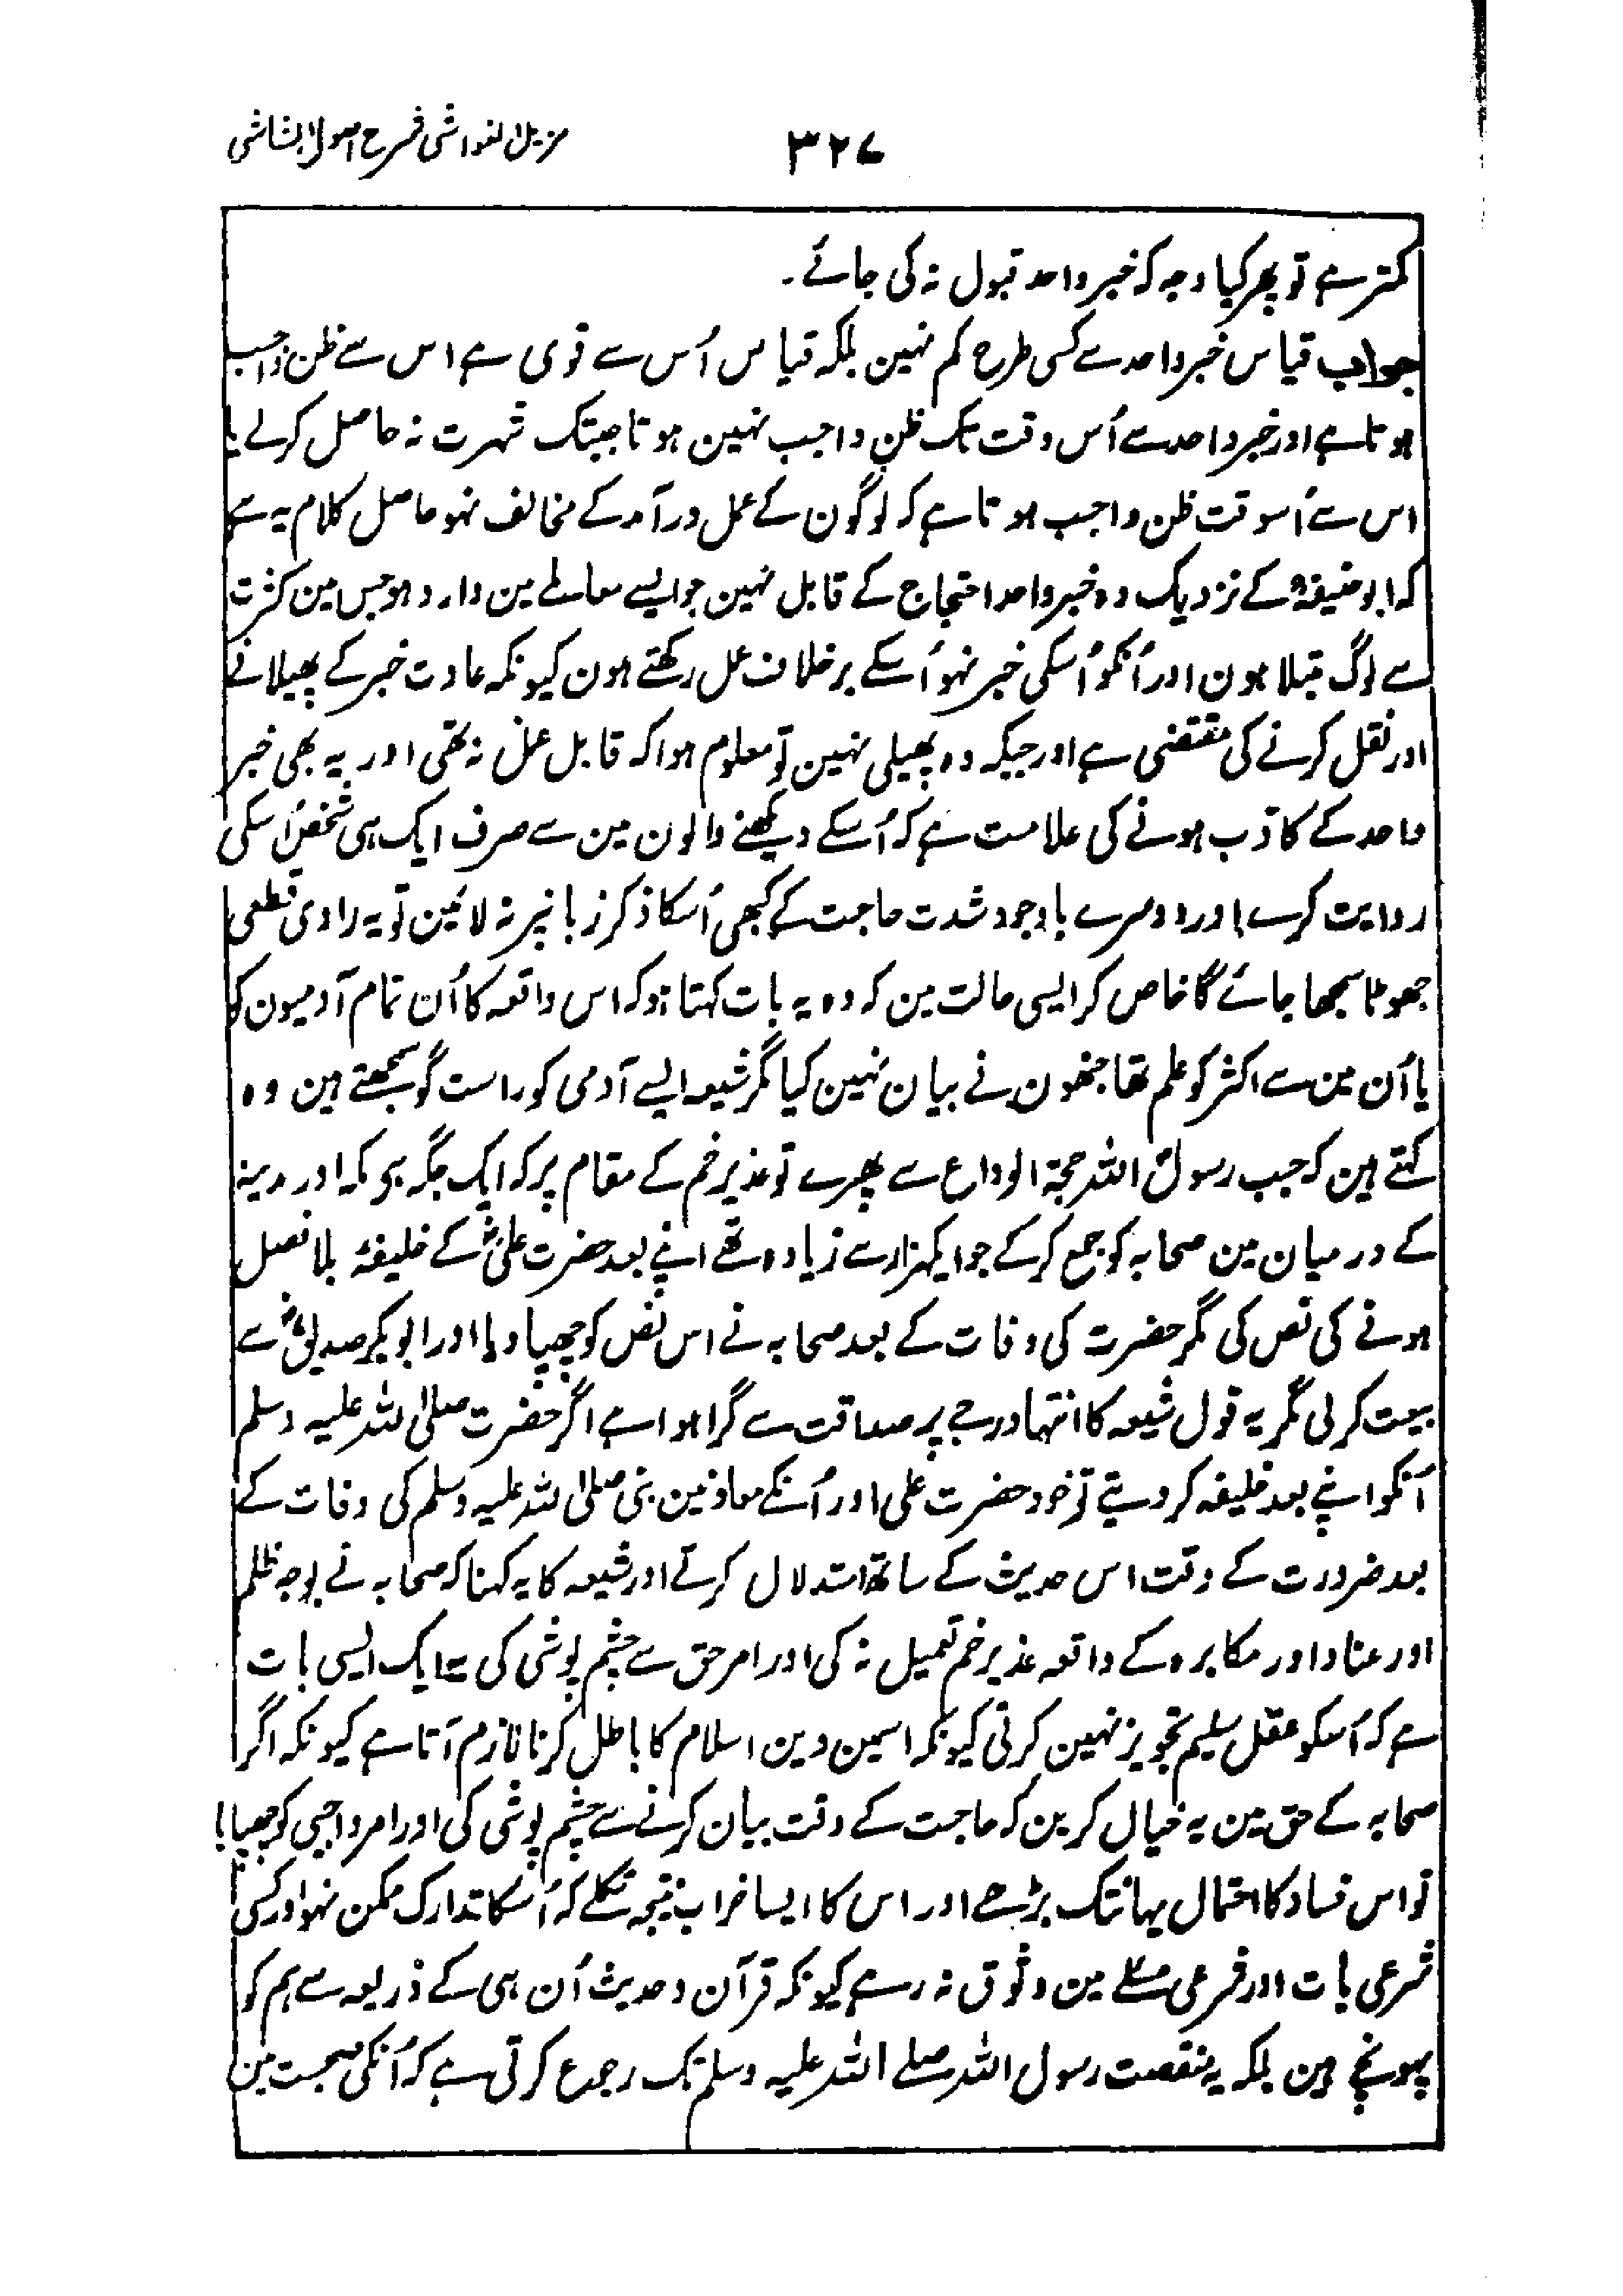 مزیل الغواشی شرح اصول الشاشی
۳۲۷
کمتر ہے تو پھر کیا وجہ کہ خبر واحد قبول نہ کی جائے۔
جواب قیاس خبر واحد سے کسی طرح کم نہین بلکہ قیاس اُس سے قوی ہے اس سے ظن واجب
ہوتا ہے اور خبر واحد سے اُس وقت تک ظن واجب نہین ہوتا جبتک شہرت نہ حاصل کرلے یا
اس سے اُسوقت ظن واجب ہوتا ہے کہ لوگون کے عمل درآمد کے مخالف نہو حاصل کلام یہ ہے
کہ ابو حنیفہؒ کے نزدیک وہ خبر واحد احتجاج کے قابل نہین جو ایسے معاملے مین وارد ہو جس مین کثرت
سے لوگ مبتلا ہون اور اُنکو اُسکی خبر نہو اُسکے برخلاف عمل رکھتے ہون کیونکہ عادت خبر کے پھیلانے
اور نقل کرنے کی مقتضی ہے اور جبکہ وہ پھیلی نہین تو معلوم ہوا کہ قابل عمل نہ تھی اور یہ بھی خبر
واحد کے کاذب ہونے کی علامت ہے کہ اُسکے دیکھنے والون مین سے صرف ایک ہی شخص اُسکی
روایت کرے اور دوسرے باوجود شدت حاجت کے کبھی اُسکا ذکر زبانپر نہ لائین تو یہ راوی قطعی
جھوٹا سمجھا جائے گا خاص کر ایسی حالت مین کہ وہ یہ بات کہتا ہو کہ اس واقعہ کا اُن تمام آدمیون کو
یا اُن مین سے اکثر کو علم تھا جنھون نے بیان نہین کیا مگر شیعہ ایسے آدمی کو راست گو سمجھتے ہین وہ
کہتے ہین کہ جب رسولؐ اللہ حجۃ الوداع سے پھرے تو غدیر خم کے مقام پر کہ ایک جگہ ہی مکہ اور مدینہ
کے درمیان مین صحابہ کو جمع کرکے جو ایکہزار سے زیادہ تھے اپنے بعد حضرت علیؓ کے خلیفۂ بلا فصل
ہونے کی نص کی مگر حضرت کی وفات کے بعد صحابہ نے اس نص کو چھپا دیا اور ابو بکر صدیقؓ سے
بیعت کرلی مگر یہ قول شیعہ کا انتہا درجے پر صداقت سے گرا ہوا ہے اگر حضرت صلی اللہ علیہ وسلم
اُنکو اپنے بعد خلیفہ کر دیتے تو خود حضرت علی اور اُنکے معاونین نبی صلی اللہ علیہ وسلم کی وفات کے
بعد ضرورت کے وقت اس حدیث کے ساتھ استدلال کرتے اور شیعہ کا یہ کہنا کہ صحابہ نے بوجہ ظلم
اور عناد اور مکابرہ کے واقعہ غدیر خم تعمیل نہ کی اور امر حق سے چشم پوشی کی یہ ایک ایسی بات
ہے کہ اُسکو عقل سلیم تجویز نہین کرتی کیونکہ اسمین دین اسلام کا باطل کرنا لازم آتا ہے کیونکہ اگر
صحابہ کے حق مین یہ خیال کرین کہ حاجت کے وقت بیان کرنے سے چشم پوشی کی اور امر واجبی کو چھپایا
تو اس فساد کا احتمال یہانتک بڑھے اور اس کا ایسا خراب نتیجہ نکلے کہ اُسکا تدارک ممکن نہو اور کسی
شرعی بات اور فرعی مسئلے مین وثوق نہ رہے کیونکہ قرآن و حدیث اُن ہی کے ذریعہ سے ہم کو
پہونچے ہین بلکہ یہ منقصت رسول اللہ صلے اللہ علیہ وسلم تک رجوع کرتی ہے کہ اُنکی صحبت مین